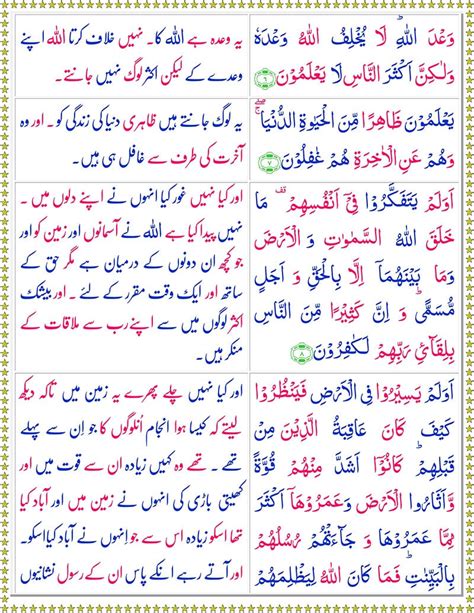 وَعْدَ اللّٰهِ ؕ لَا يُخْلِفُ اللّٰهُ وَعْدَهٗ
وَلٰكِنَّ اَكْثَرَ النَّاسِ لَا يَعْلَمُوْنَ ﴿۶﴾
یہ وعدہ ہے اللہ کا۔ نہیں خلاف کرتا اللہ اپنے
وعدے کے لیکن اکثر لوگ نہیں جانتے۔
يَعْلَمُوْنَ ظَاهِرًا مِّنَ الْحَيٰوةِ الدُّنْيَا ۖۚ
وَهُمْ عَنِ الْاٰخِرَةِ هُمْ غٰفِلُوْنَ ﴿۷﴾
یہ لوگ جانتے ہیں ظاہری دنیا کی زندگی کو ۔ اور وہ
آخرت کی طرف سے غافل ہی ہیں۔
اَوَلَمْ يَتَفَكَّرُوْا فِيْٓ اَنْفُسِهِمْ ۟ مَا
خَلَقَ اللّٰهُ السَّمٰوٰتِ وَ الْاَرْضَ
وَ مَا بَيْنَهُمَآ اِلَّا بِالْحَقِّ وَ اَجَلٍ
مُّسَمًّى ؕ وَ اِنَّ كَثِيْرًا مِّنَ النَّاسِ
بِلِقَآئِ رَبِّهِمْ لَكٰفِرُوْنَ ﴿۸﴾
اور کیا نہیں غور کیا انہوں نے اپنے دلوں میں ۔
نہیں پیدا کیا ہے اللہ نے آسمانوں اور زمین کو اور
جو کچھ ان دونوں کے درمیان ہے مگر حق کے
ساتھ اور ایک وقت مقرر کے لئے ۔ اور بیشک
اکثر لوگوں میں سے اپنے رب سے ملاقات کے
منکر ہیں۔
اَوَلَمْ يَسِيْرُوْا فِي الْاَرْضِ فَيَنْظُرُوْا
كَيْفَ كَانَ عَاقِبَةُ الَّذِيْنَ مِنْ
قَبْلِهِمْ ؕ كَانُوْٓا اَشَدَّ مِنْهُمْ قُوَّةً
وَّاَثَارُوا الْاَرْضَ وَعَمَرُوْهَآ اَكْثَرَ
مِمَّا عَمَرُوْهَا وَ جَآءَتْهُمْ رُسُلُهُمْ
بِالْبَيِّنٰتِ ؕ فَمَا كَانَ اللّٰهُ لِيَظْلِمَهُمْ
اور کیا نہیں چلے پھرے یہ زمین میں تاکہ دیکھ
لیتے کہ کیسا ہوا انجام اُنلوگوں کا جو اِن سے پہلے
تھے ۔ تھے وہ کہیں زیادہ ان سے قوت میں اور
کھیتی باڑی کی انہوں نے زمین میں اور آباد کیا
تھا اسکو زیادہ اس سے جو اِنہوں نے آباد کیااسکو۔
اور آتے رہے انکے پاس ان کے رسول نشانیوں